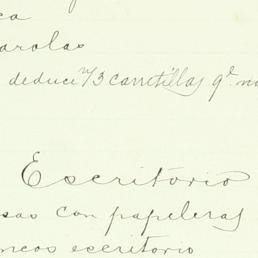 ca
arolas
deducen 1/3 carretillas q.e no
Escritorio
sas con papeleras
ncos escritorio